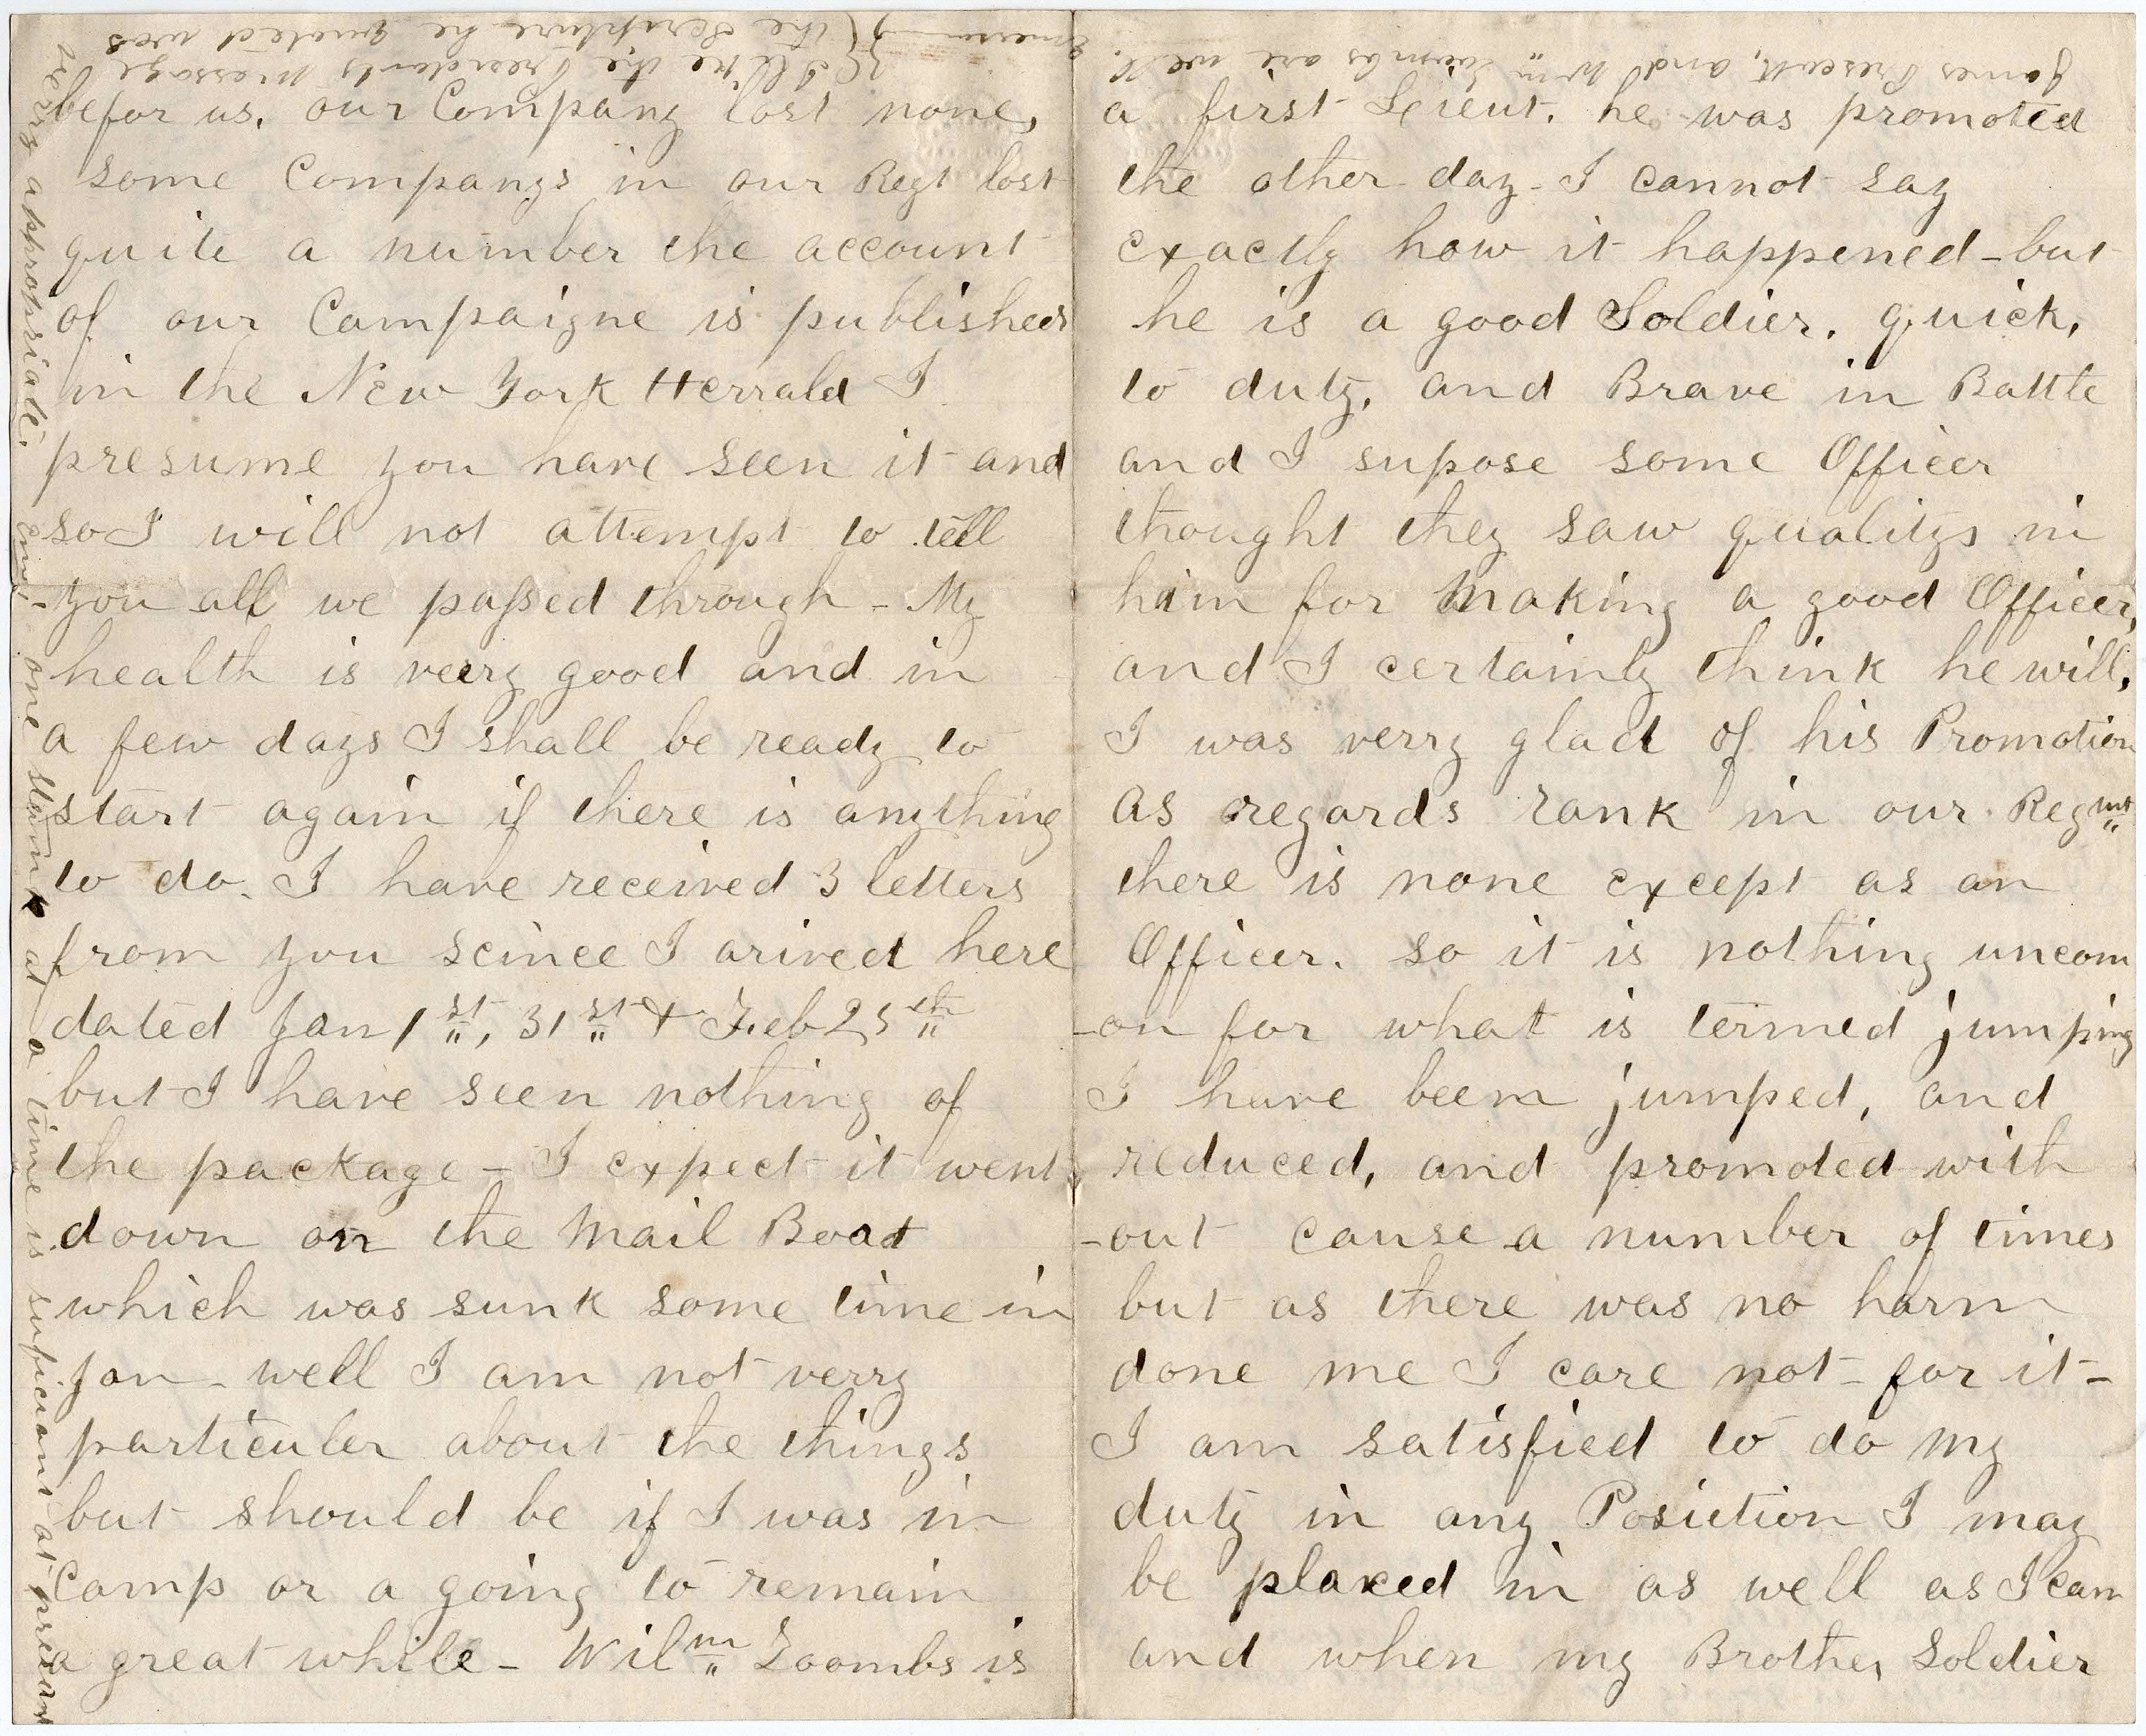 befor us. our Company lost none,
some Companys in our Regt lost
quite a number the account
of our Campaigne is published
in the New York Herrald I
presume you have seen it and
so I will not attempt to tell
you all we passed through - My
health is veery good and in
a few days I shall be ready to
start again if there is anything
to do. I have received 3 letters
from you scince I arived here
dated Jan 1st, 31st & Feb 25th
but I have seen nothing of
the package - I expect it went
down on the Mail Boat
which was sunk some time in
Jan - well I am not verry
particuler about the things
but should be if I was in
Camp or a going to remain
a great while - Wilm Loombs is
a first Leieut. he was promoted
the other day - I cannot say
exactly how it happened - but
he is a good Soldier. quick,
to duty, and Brave in Battle
and I supose some Officer
thought they saw qualitys in
him for making a good Officer,
and I certainly think he will,
I was verry glad of his Promotion
as regards rank in our Regmt
there is none except as an
Officer. so it is nothing uncom
-on for what is termed jumping
I have beem jumped, and
reduced, and promoted with
-out cause a number of times
but as there was no harm
done me I care not - for it -
I am satisfied to do my
duty in any Posiction I may
be plaxed in as well as I can
and when my Brother Soldier
James Prescott, and Wm Loombs are well.
I like the Presidents Message
the Scripture he quoted was
verry appropriate.
one stamp at a time is suficiant at presant